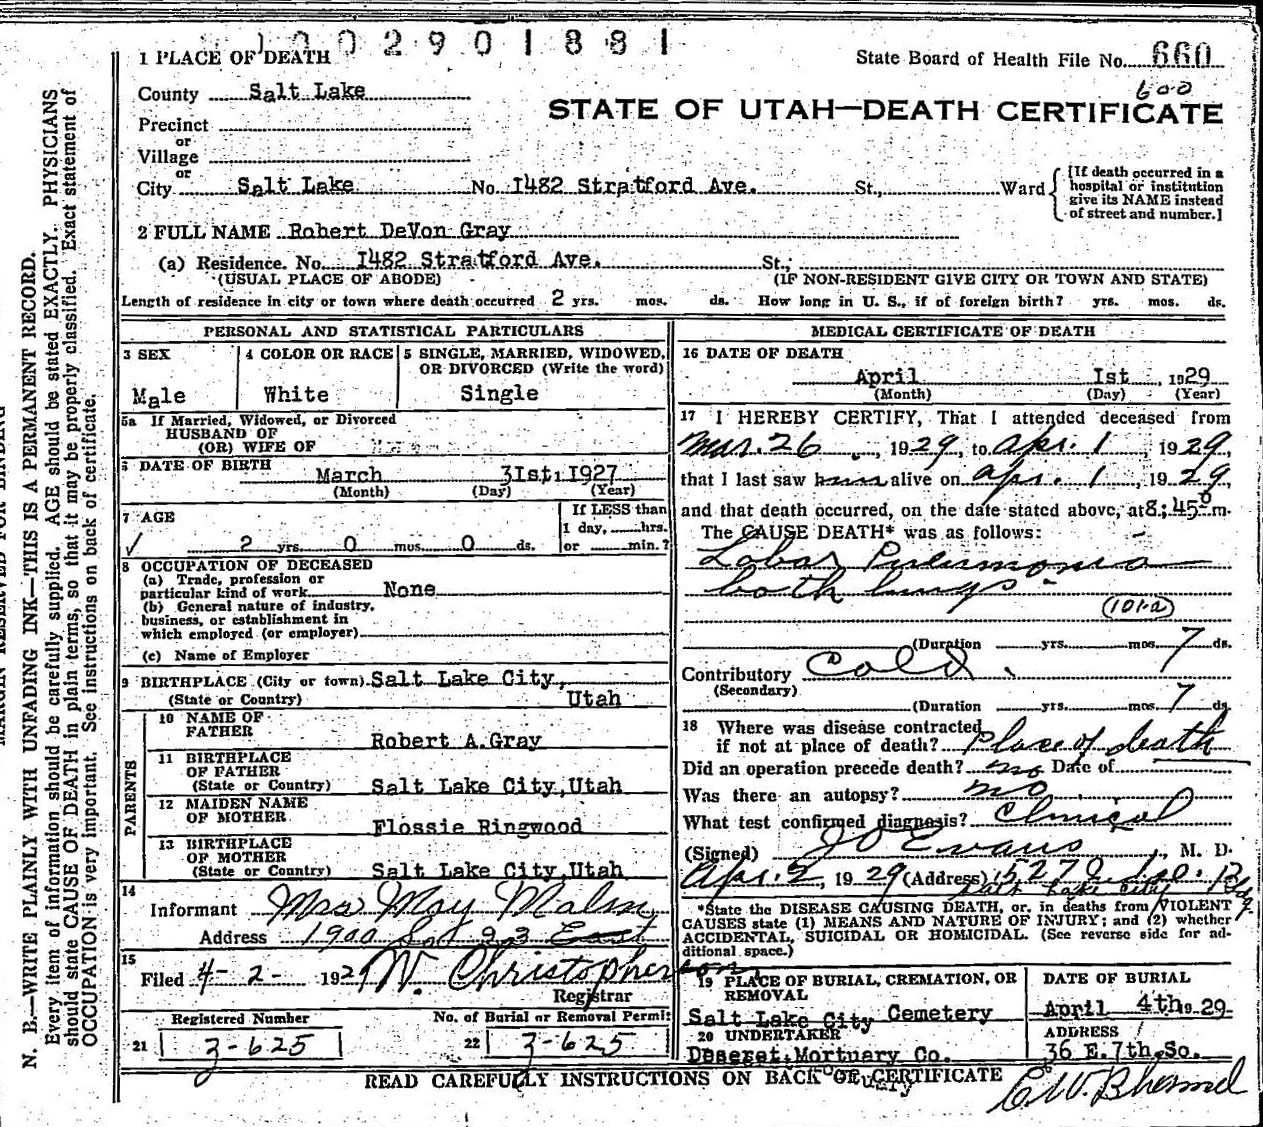 1002901881
1 PLACE OF DEATH
State Board of Health File No. 660
600
County Salt Lake
STATE OF UTAH—DEATH CERTIFICATE
Precinct
or
Village
or
City Salt Lake No. I482 Stratford Ave. St., Ward
[If death occurred in a
hospital or institution
give its NAME instead
of street and number.]
2 FULL NAME Robert DeVon Gray
(a) Residence. No. I482 Stratford Ave. St.;
(USUAL PLACE OF ABODE) (IF NON-RESIDENT GIVE CITY OR TOWN AND STATE)
Length of residence in city or town where death occurred 2 yrs. mos. ds. How long in U. S., if of foreign birth? yrs. mos. ds.
PERSONAL AND STATISTICAL PARTICULARS
3 SEX
Male
4 COLOR OR RACE
White
5 SINGLE, MARRIED, WIDOWED,
OR DIVORCED (Write the word)
Single
5a If Married, Widowed, or Divorced
HUSBAND OF
(OR) WIFE OF
6 DATE OF BIRTH
March 3Ist, I927
(Month) (Day) (Year)
7 AGE
If LESS than
1 day, hrs.
2 yrs. 0 mos. 0 ds. or min.?
8 OCCUPATION OF DECEASED
(a) Trade, profession or
particular kind of work None
(b) General nature of industry,
business, or establishment in
which employed (or employer)
(c) Name of Employer
9 BIRTHPLACE (City or town) Salt Lake City,
(State or Country) Utah
PARENTS
10 NAME OF
FATHER Robert A.Gray
11 BIRTHPLACE
OF FATHER
(State or Country) Salt Lake City,Utah
12 MAIDEN NAME
OF MOTHER Flossie Ringwood
13 BIRTHPLACE
OF MOTHER
(State or Country) Salt Lake City,Utah
14
Informant Mrs May Malm
Address 1900 So 23 East
15
Filed 4-2- 1929 W. Christopherson
Registrar
Registered Number
21 3-625
No. of Burial or Removal Permit
22 3-625
MEDICAL CERTIFICATE OF DEATH
16 DATE OF DEATH
April Ist , 1929
(Month) (Day) (Year)
17 I HEREBY CERTIFY, That I attended deceased from
Mar. 26, 1929, to Apr. 1, 1929
that I last saw him alive on Apr. 1, 1929,
and that death occurred, on the date stated above, at 8:45 m.
The CAUSE DEATH* was as follows:
Lobar Pneumonia
both lungs
(101-a)
(Duration yrs. mos. 7 ds.
Contributory Cold
(Secondary)
(Duration yrs. mos. 7 ds.
18 Where was disease contracted
if not at place of death? place of death
Did an operation precede death? no Date of
Was there an autopsy? no
What test confirmed diagnosis? Clinical
(Signed) J O Evans, M. D.
Apr. 2, 1929 (Address) 527 Bldg.
Salt Lake City
*State the DISEASE CAUSING DEATH, or, in deaths from VIOLENT
CAUSES state (1) MEANS AND NATURE OF INJURY; and (2) whether
ACCIDENTAL, SUICIDAL OR HOMICIDAL. (See reverse side for ad-
ditional space.)
19 PLACE OF BURIAL, CREMATION, OR
REMOVAL
Salt Lake City Cemetery
DATE OF BURIAL
April 4th 1929
20 UNDERTAKER
Deseret Mortuary Co.
ADDRESS
36 E.7th.So.
READ CAREFULLY INSTRUCTIONS ON BACK OF CERTIFICATE
MARGIN RESERVED FOR BINDING
N. B.—WRITE PLAINLY WITH UNFADING INK—THIS IS A PERMANENT RECORD.
Every item of information should be carefully supplied. AGE should be stated EXACTLY. PHYSICIANS
should state CAUSE OF DEATH in plain terms, so that it may be properly classified. Exact statement of
OCCUPATION is very important. See instructions on back of certificate.